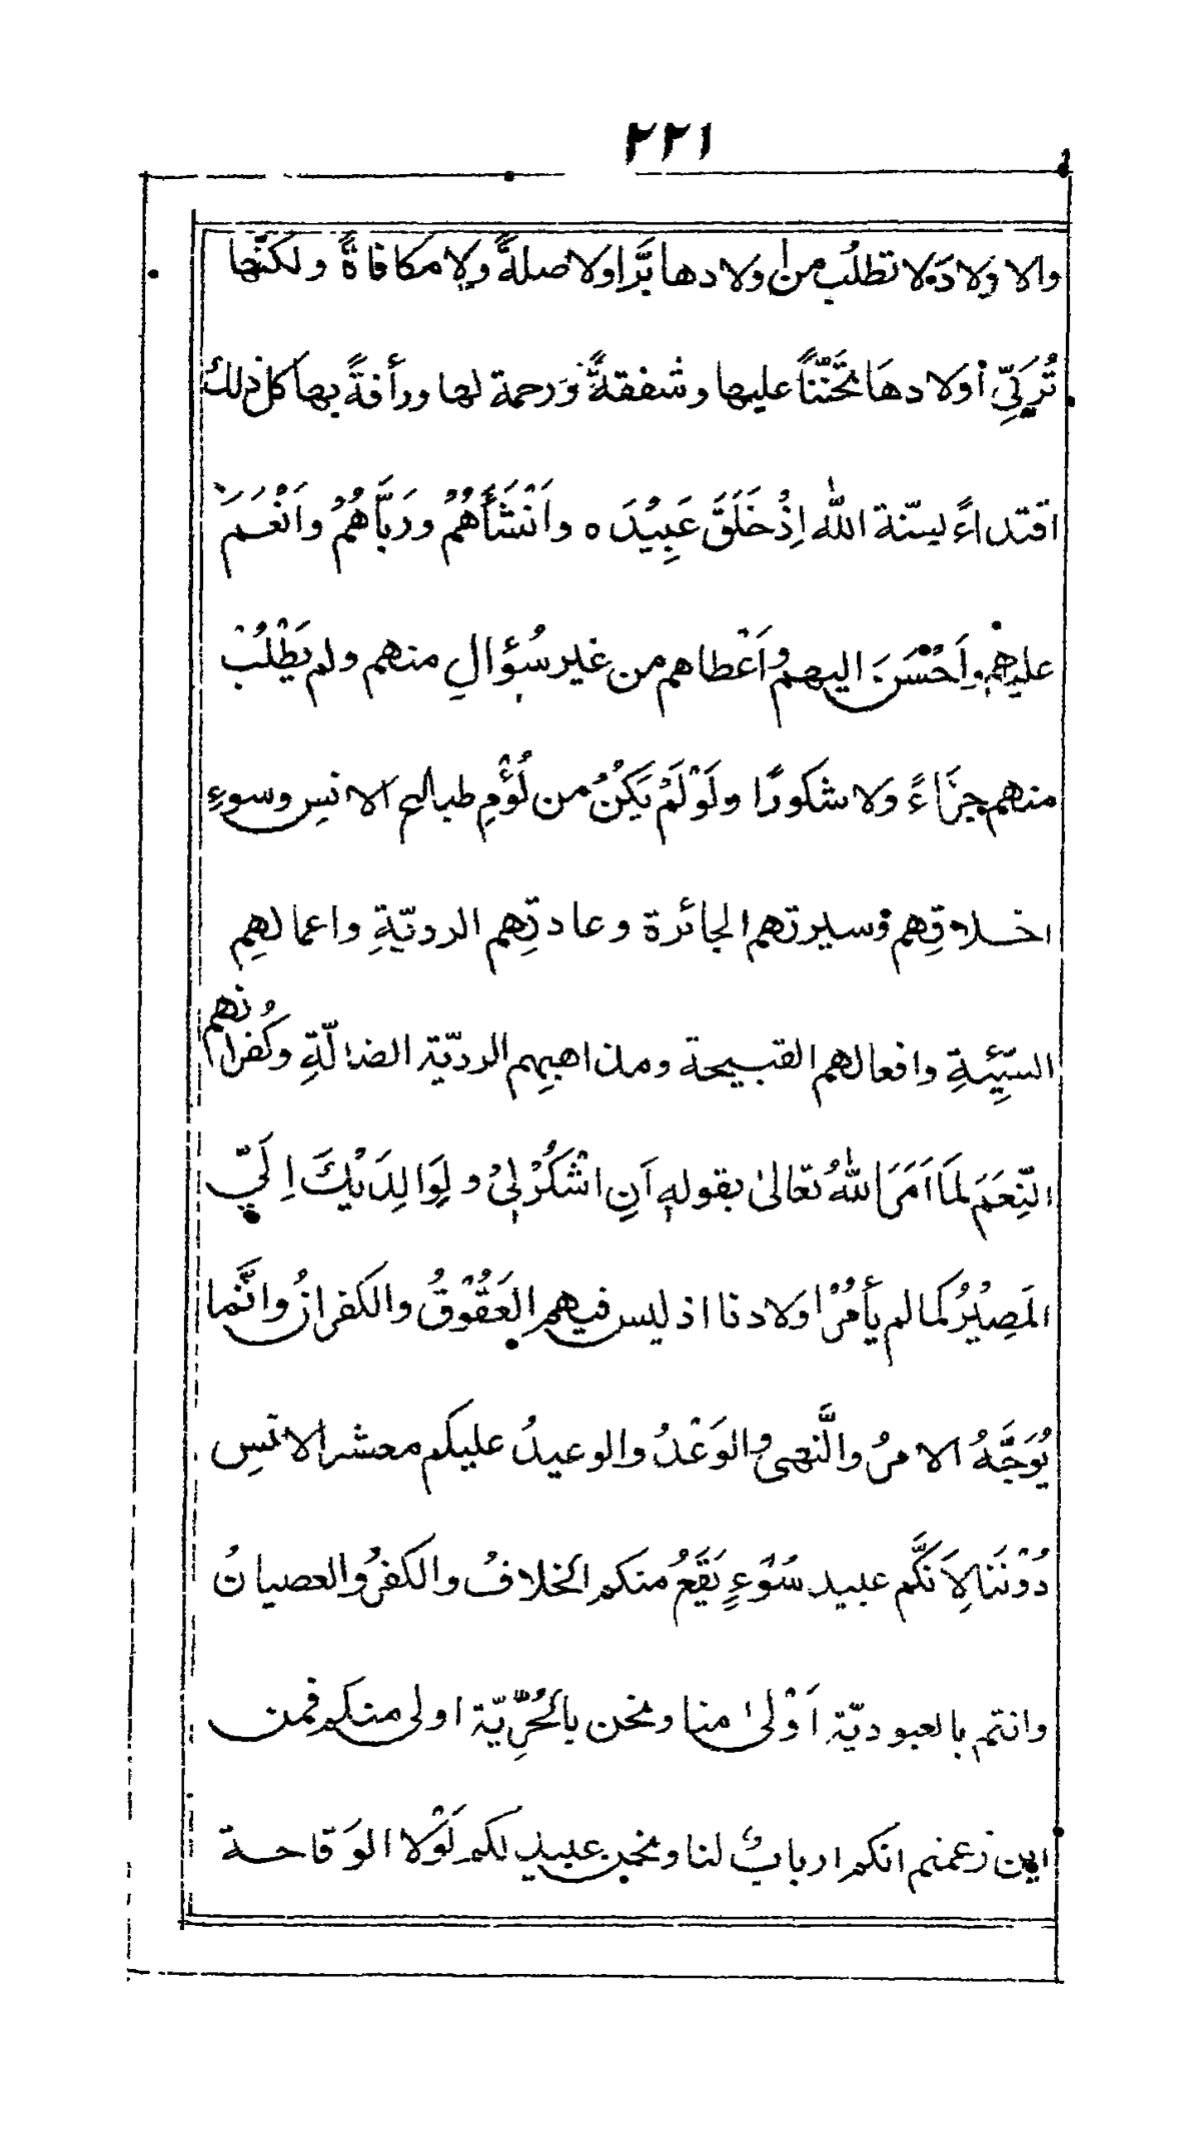 ٢٢١
والاولادة لا تطلب من اولادها بَرًّا ولا صلةً ولا مكافاةً ولكنّها
تُرَبِّي أولادهَا تَحَنُّنًا عليها وشفقةً وَرحمة لها ورأفةً بها كل ذلك
اقتداءً لسنّة الله اِذْ خَلَقَ عَبِيْدَه وَاَنْشَأَهُمْ ورَبَّاهُمْ وَاَنْعَمَ
عليهم وَاَحْسَنَ اليهم وَاَعْطاهم من غير سُؤالٍ منهم ولم يَطْلُبْ
منهم جزَاءً وَلا شكورًا ولَوْلَمْ يَكُنْ من لُؤْمِ طبائع الانسِ وسوءِ
اخلاقِهم وسيرتهم الجائرة وعادتِهم الرديّةِ واعمالهِم
السَّيِّئةِ وافعالهم القبيحة ومذاهبِهم الرديّة الضالّةِ وكُفرانهم
النِّعَمَ لمَا اَمَرَ اللهُ تعالىٰ بقوله اَنِ اشْكُرْلِيْ ولِوَالِدَيْكَ اِلَيَّ
المَصِيْرُ كما لم يأمُرْ اَوْلادنا اذ ليس فيهم العَقُوْقُ والكفرانُ وانَّما
يُوَجَّهُ الامرُ والنَّهي والوَعْدُ والوعيدُ عليكم معشر الانسِ
دُوْنَنا لِاَنَّكُم عبيد سُوْءٍ يَقَعُ منكم الخلافُ والكفرُ والعصيانُ
وانتم بالعبوديّة اَوْلىٰ منا ونحن بالحُرِّيّة اولى منكم فمن
اين زعمتم انكم اربابٌ لنا ونحن عبيد لكم لَوْلا الوَقاحة